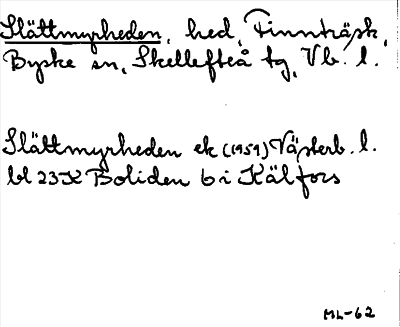 Slättmyrheden, hed, Finnträsk,
Byske sn, Skellefteå tg, Vb. l.
Slättmyrheden ek (1959) Västerb. l.
bl 23K Boliden 6 i Kälfors
ML-62